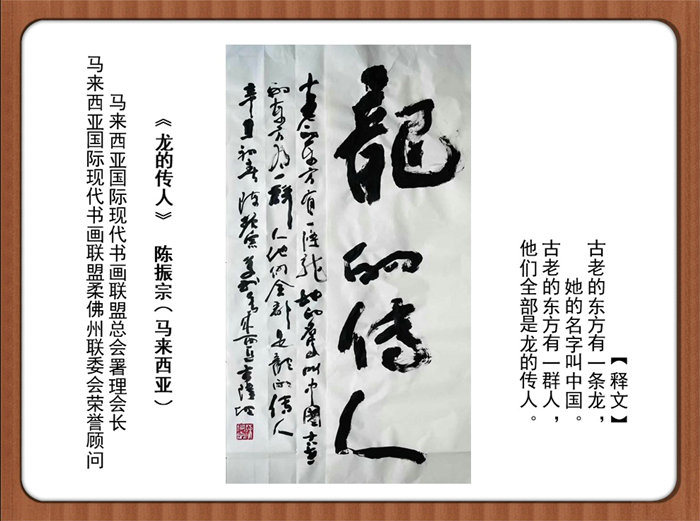 【释文】
古老的东方有一条龙，
她的名字叫中国。
古老的东方有一群人，
他们全部是龙的传人。
龍的傳人
古老的东方有一條龙她的名字叫中國古老
的东方有一群人他们全部是龙的傳人
辛丑初春陈振宗马来西亚吉隆坡
《龙的传人》 陈振宗（马来西亚）
马来西亚国际现代书画联盟总会署理会长
马来西亚国际现代书画联盟柔佛州联委会荣誉顾问